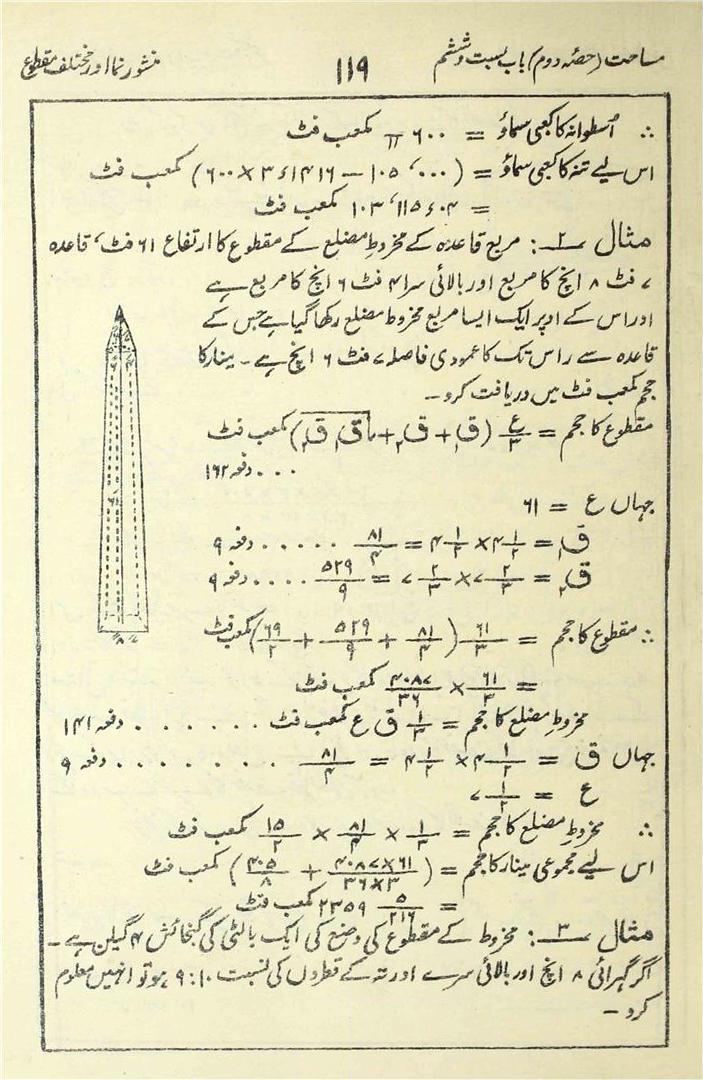 مساحت (حصّہ دوم) باب بست و ششم
۱۱۹
منشور نما اور مختلف مقطوع
∴ اُسطوانہ کا کعبی سماؤ = ۶۰۰ π مکعب فٹ
اس لیے تنہ کا کعبی سماؤ = (۱۰۵٬۰۰۰ − ۳٫۱۴۱۶ × ۶۰۰) مکعب فٹ
= ۱۰۳٬۱۱۵٫۰۴ مکعب فٹ
مثال ۲: مربع قاعدہ کے مخروطِ مضلع کے مقطوع کا ارتفاع ۶۱ فٹ، قاعدہ
۷ فٹ ۸ انچ کا مربع اور بالائی سرا ۴ فٹ ۶ انچ کا مربع ہے
اور اس کے اوپر ایک ایسا مربع مخروط مضلع رکھا گیا ہے جس کے
قاعدہ سے راس تک کا عمودی فاصلہ ۷ فٹ ۶ انچ ہے۔ مینار کا
حجم مکعب فٹ میں دریافت کرو۔
مقطوع کا حجم = ع/۳ (ق₁ + ق₂ + √ق₁ ق₂) مکعب فٹ
... دفعہ ۱۶۲
جہاں ع = ۶۱
ق₁ = ۴ ۱/۲ × ۴ ۱/۲ = ۸۱/۴ ...... دفعہ ۹
ق₂ = ۷ ۲/۳ × ۷ ۲/۳ = ۵۲۹/۹ .... دفعہ ۹
∴ مقطوع کا حجم = ۶۱/۳ (۸۱/۴ + ۵۲۹/۹ + ۶۹/۲) مکعب فٹ
= ۶۱/۳ × ۴۰۸۷/۳۶ مکعب فٹ
مخروطِ مضلع کا حجم = ۱/۳ ق ع مکعب فٹ ....... دفعہ ۱۴۱
جہاں ق = ۴ ۱/۲ × ۴ ۱/۲ = ۸۱/۴ ......... دفعہ ۹
ع = ۷ ۱/۲
∴ مخروطِ مضلع کا حجم = ۱/۳ × ۸۱/۴ × ۱۵/۲ مکعب فٹ
اس لیے مجموعی مینار کا حجم = (۴۰۸۷×۶۱/۳۶×۳ + ۴۰۵/۸) مکعب فٹ
= ۲۳۵۹ ۵/۲۱۶ مکعب فٹ
مثال ۳: مخروط کے مقطوع کی وضع کی ایک بالٹی کی گنجائش ۴ گیلن ہے۔
اگر گہرائی ۸ انچ اور بالائی سرے اور تہ کے قطروں کی نسبت ۱۰:۹ ہو تو انہیں معلوم
کرو۔